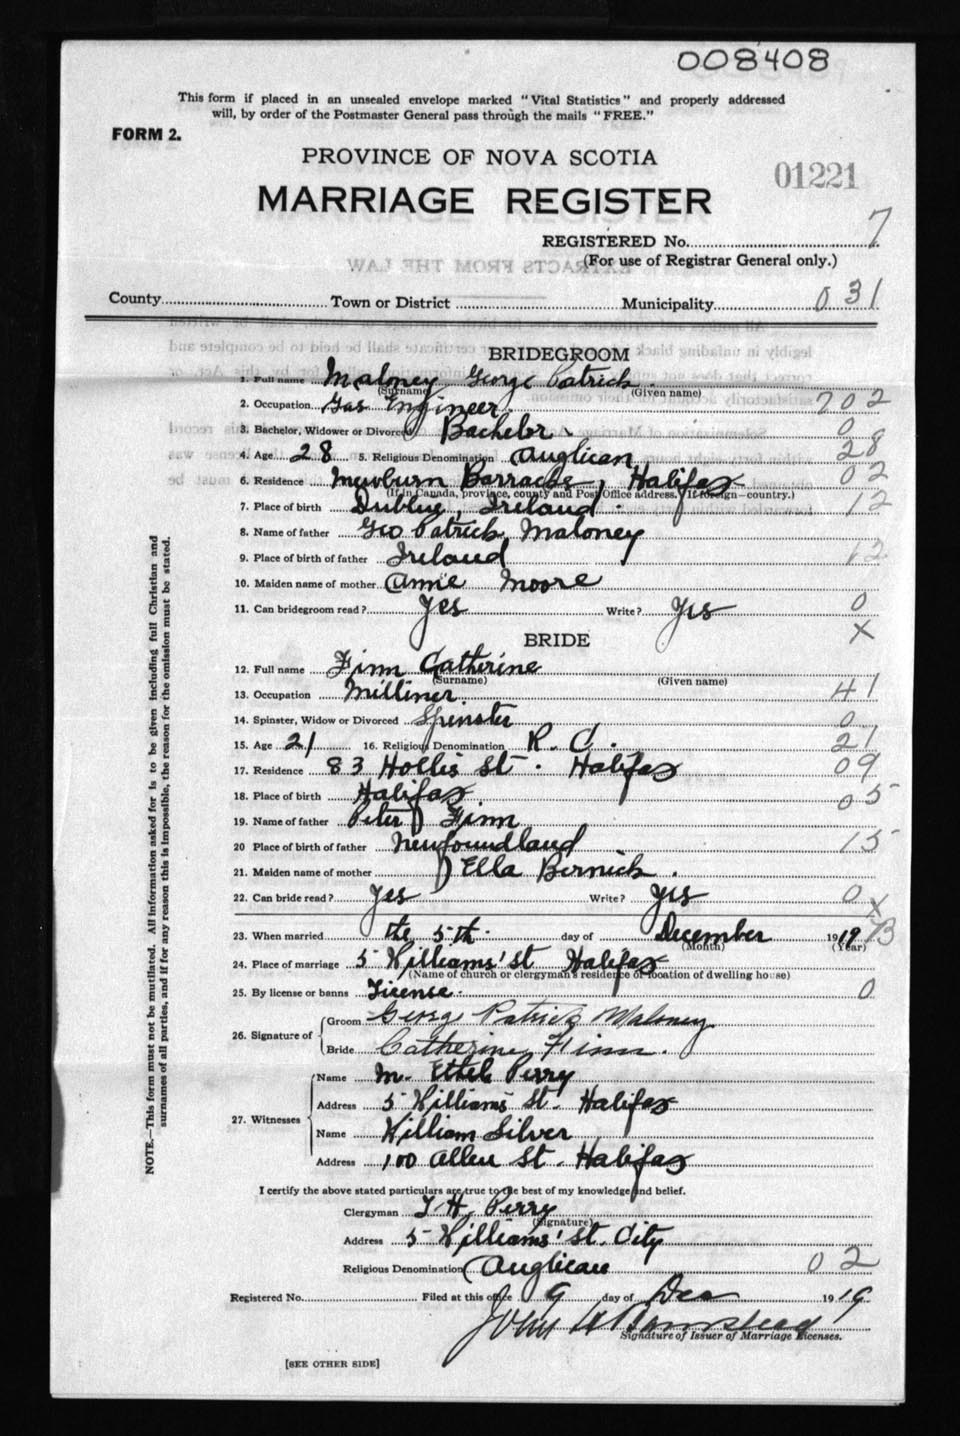 008408
This form if placed in an unsealed envelope marked "Vital Statistics" and properly addressed
will, by order of the Postmaster General pass through the mails "FREE."
FORM 2.
PROVINCE OF NOVA SCOTIA
01221
MARRIAGE REGISTER
REGISTERED No. 7
(For use of Registrar General only.)
County Town or District Municipality 031
BRIDEGROOM
1. Full name Maloney George Patrick.
(Surname) (Given name)
2. Occupation Gas Engineer. 702
3. Bachelor, Widower or Divorced Bachelor. 0
4. Age 28 5. Religious Denomination Anglican 28
6. Residence Barracks, Halifax 02
(If in Canada, province, county and Post Office address, If foreign—country.)
7. Place of birth Dublin, Ireland. 12
8. Name of father Geo Patrick Maloney
9. Place of birth of father Ireland 12
10. Maiden name of mother Annie Moore
11. Can bridegroom read? Yes Write? Yes 0
X
BRIDE
12. Full name Finn Catherine
(Surname) (Given name)
13. Occupation Milliner. 41
14. Spinster, Widow or Divorced Spinster 0
15. Age 21 16. Religious Denomination R. C. 21
17. Residence 83 Hollis St. Halifax 09
18. Place of birth Halifax. 05
19. Name of father Peter Finn
20 Place of birth of father Newfoundland 15
21. Maiden name of mother Ella Bernick.
22. Can bride read? Yes Write? Yes 0 X
23. When married the 5th day of December 1919
(Month) (Year)
24. Place of marriage 5 Williams' St Halifax
(Name of church or clergyman's residence or location of dwelling house)
25. By license or banns License. 0
26. Signature of Groom George Patrick Maloney.
Bride Catherine Finn.
27. Witnesses Name M. Ethel Perry
Address 5 Williams St. Halifax
Name William Silver
Address 100 Allen St. Halifax
I certify the above stated particulars are true to the best of my knowledge and belief.
Clergyman T H. Perry
(Signature)
Address 5 Williams' St. City
Religious Denomination Anglican 02
Registered No. Filed at this office 9 day of Dec 1919
John H
Signature of Issuer of Marriage Licenses.
[SEE OTHER SIDE]
NOTE.—This form must not be mutilated. All information asked for is to be given including full Christian and
surnames of all parties, and if for any reason this is impossible, the reason for the omission must be stated.